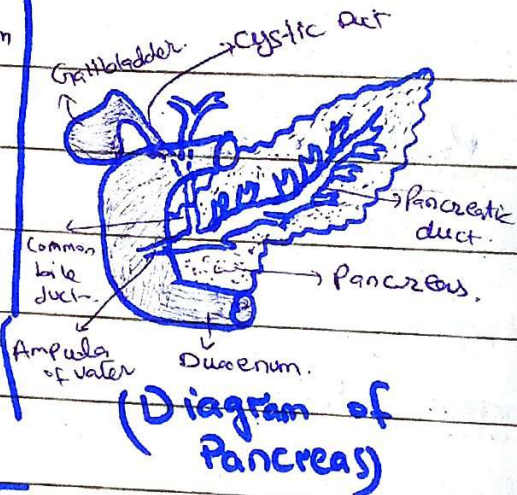 n
Gallbladder.
Cystic Duct
Pancreatic
duct.
Common
bile
duct.
Pancreas.
Ampula
of vater
Duoenum.
(Diagram of
Pancreas)